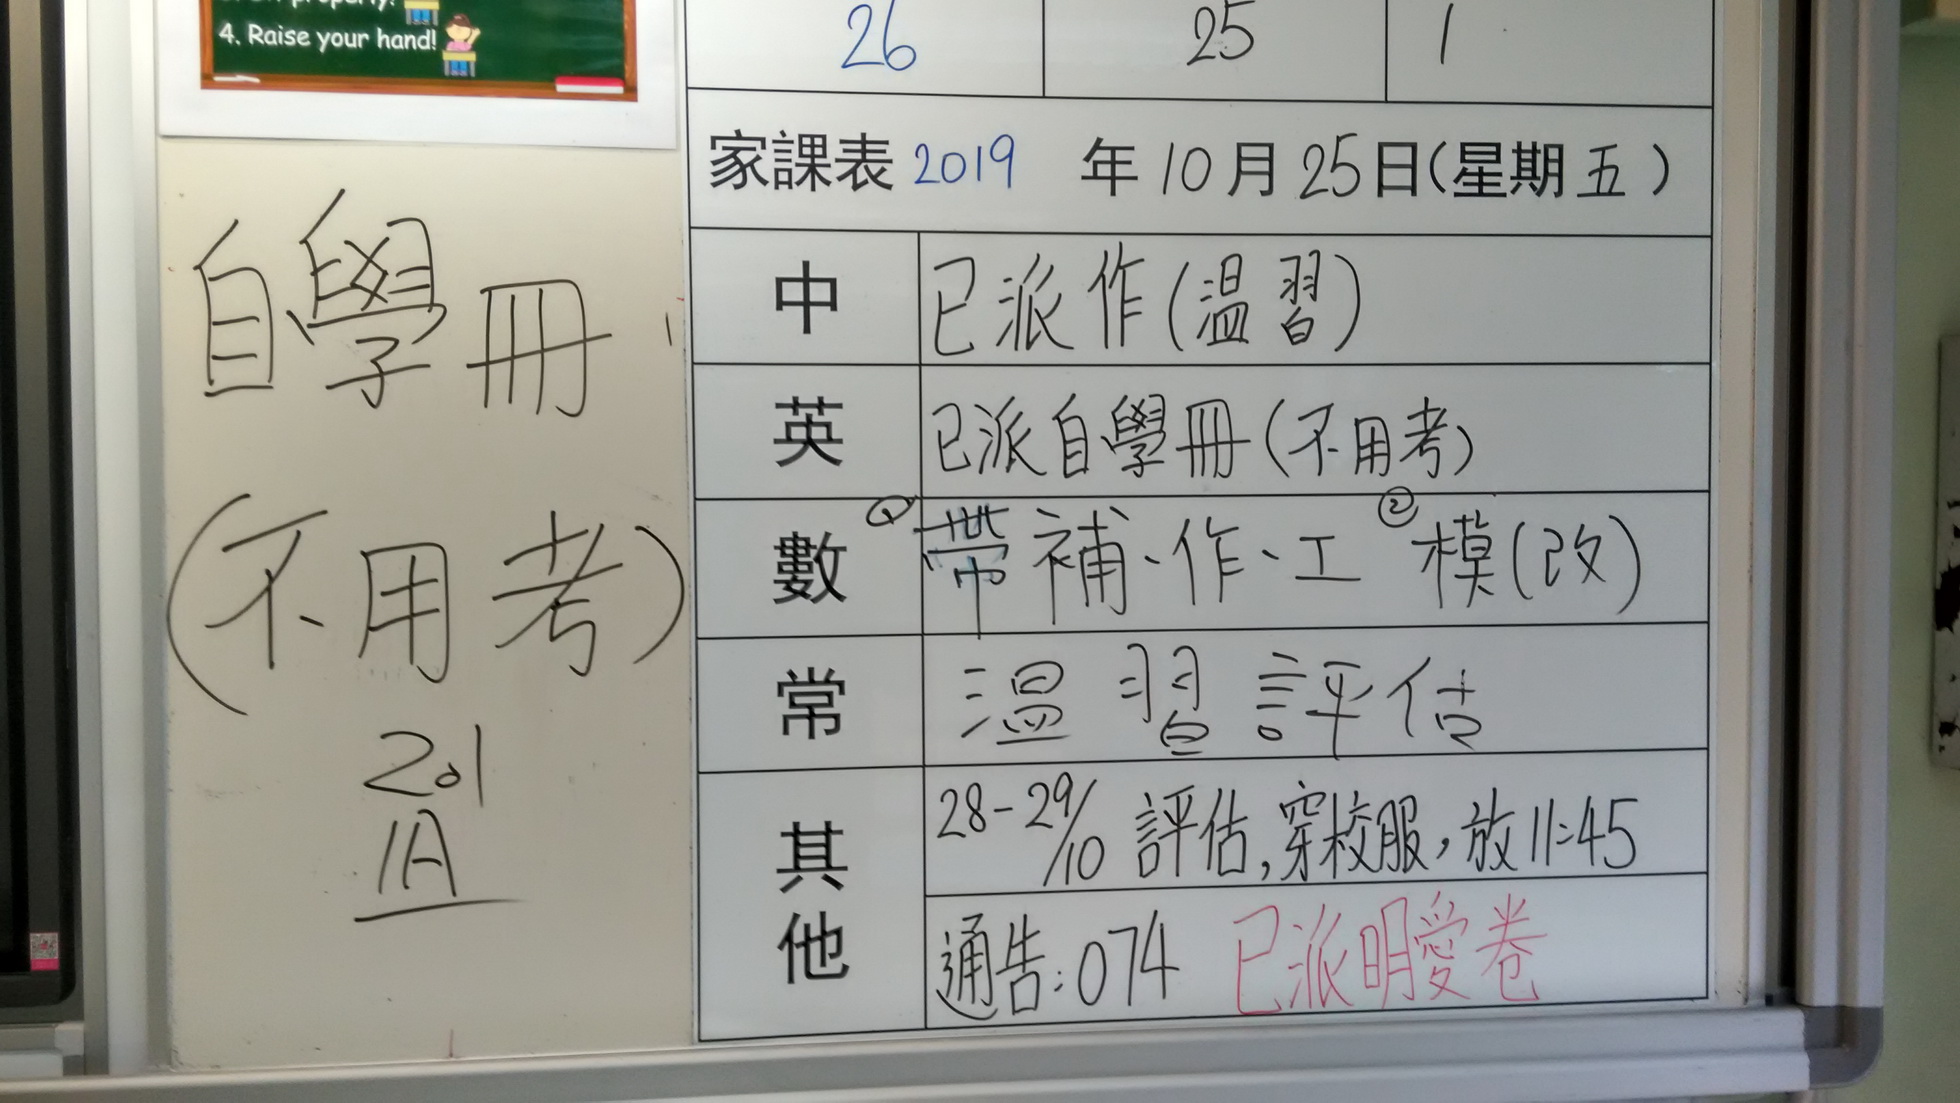 4. Raise your hand!
26 25 1
家課表 2019 年 10 月 25 日(星期五)
中 已派作(温習)
英 已派自學冊(不用考)
數 ① 帶補、作、工 ② 模(改)
常 温習評估
其他 28-29/10 評估,穿校服,放11:45
通告:074 已派明愛卷
自學冊
(不用考)
201
1A